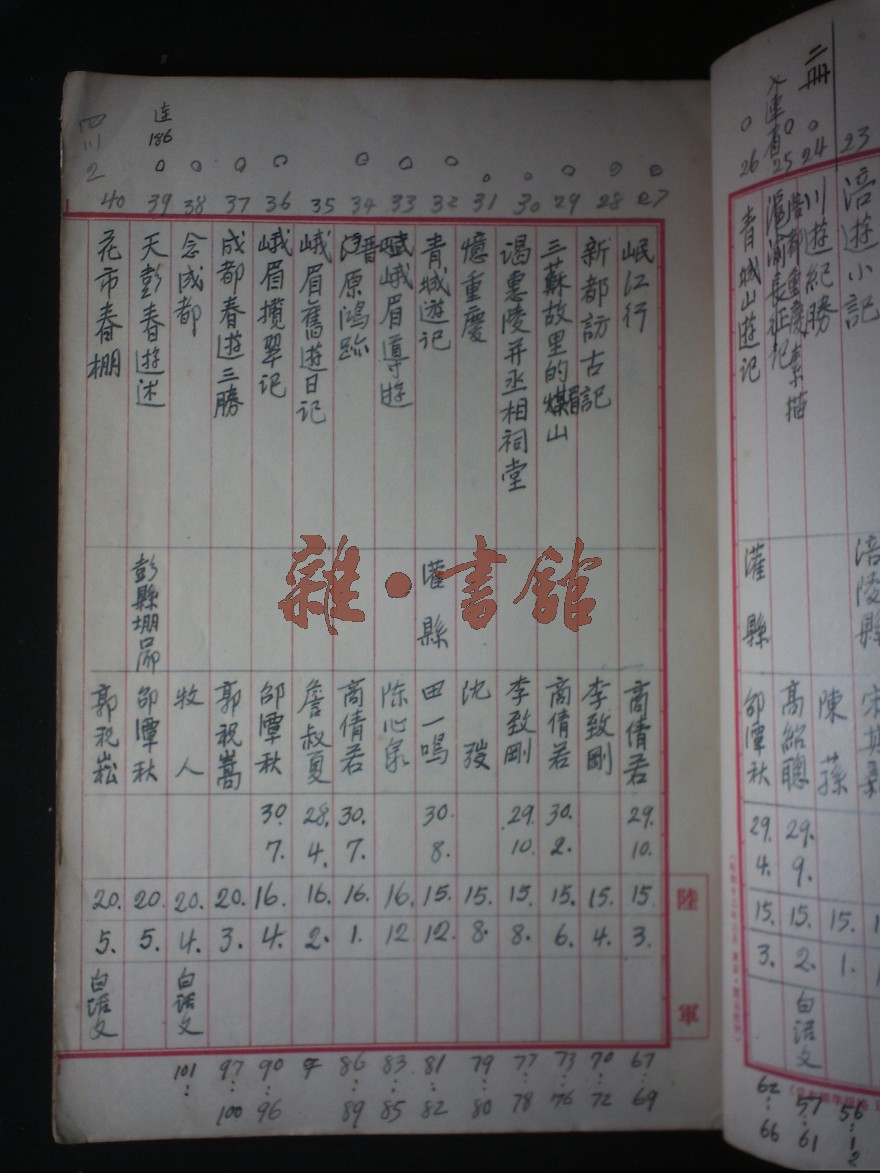 二冊
23
涪遊小記
涪陵縣
24
川遊紀勝
陳蓀
15.
1.
56
25
重慶素描
高紹聰
29.
9.
15.
2.
白話文
57
61
26
青城山遊记
灌縣
邰潭秋
29.
4.
15.
3.
62
66
陸軍
27
岷江行
高倩若
29.
10.
15.
3.
67
69
28
新都訪古記
李致剛
15.
4.
70
72
29
三蘇故里的山
高倩若
30.
2.
15.
6.
73
76
30
謁惠陵并丞相祠堂
李致剛
29.
10.
15.
8.
77
78
31
憶重慶
沈弢
15.
8.
79
80
32
青城遊记
灌縣
田一鳴
30.
8.
15.
12.
81
82
33
峨眉導遊
陈心泉
16.
12
83
85
34
晋原鴻跡
高倩若
30.
7.
16.
1.
86
89
35
峨眉舊遊日记
詹叔夏
28.
4.
16.
2.
36
峨眉攬翠记
邰潭秋
30.
7.
16.
4.
90
96
37
成都春遊三勝
郭祝嵩
20.
3.
97
100
38
念成都
牧人
20.
4.
白话文
101
连
186
39
天彭春遊述
彭縣堋口
邰潭秋
20.
5.
四川2
40
花市春棚
郭祝崧
20.
5.
白话文
雜·書館